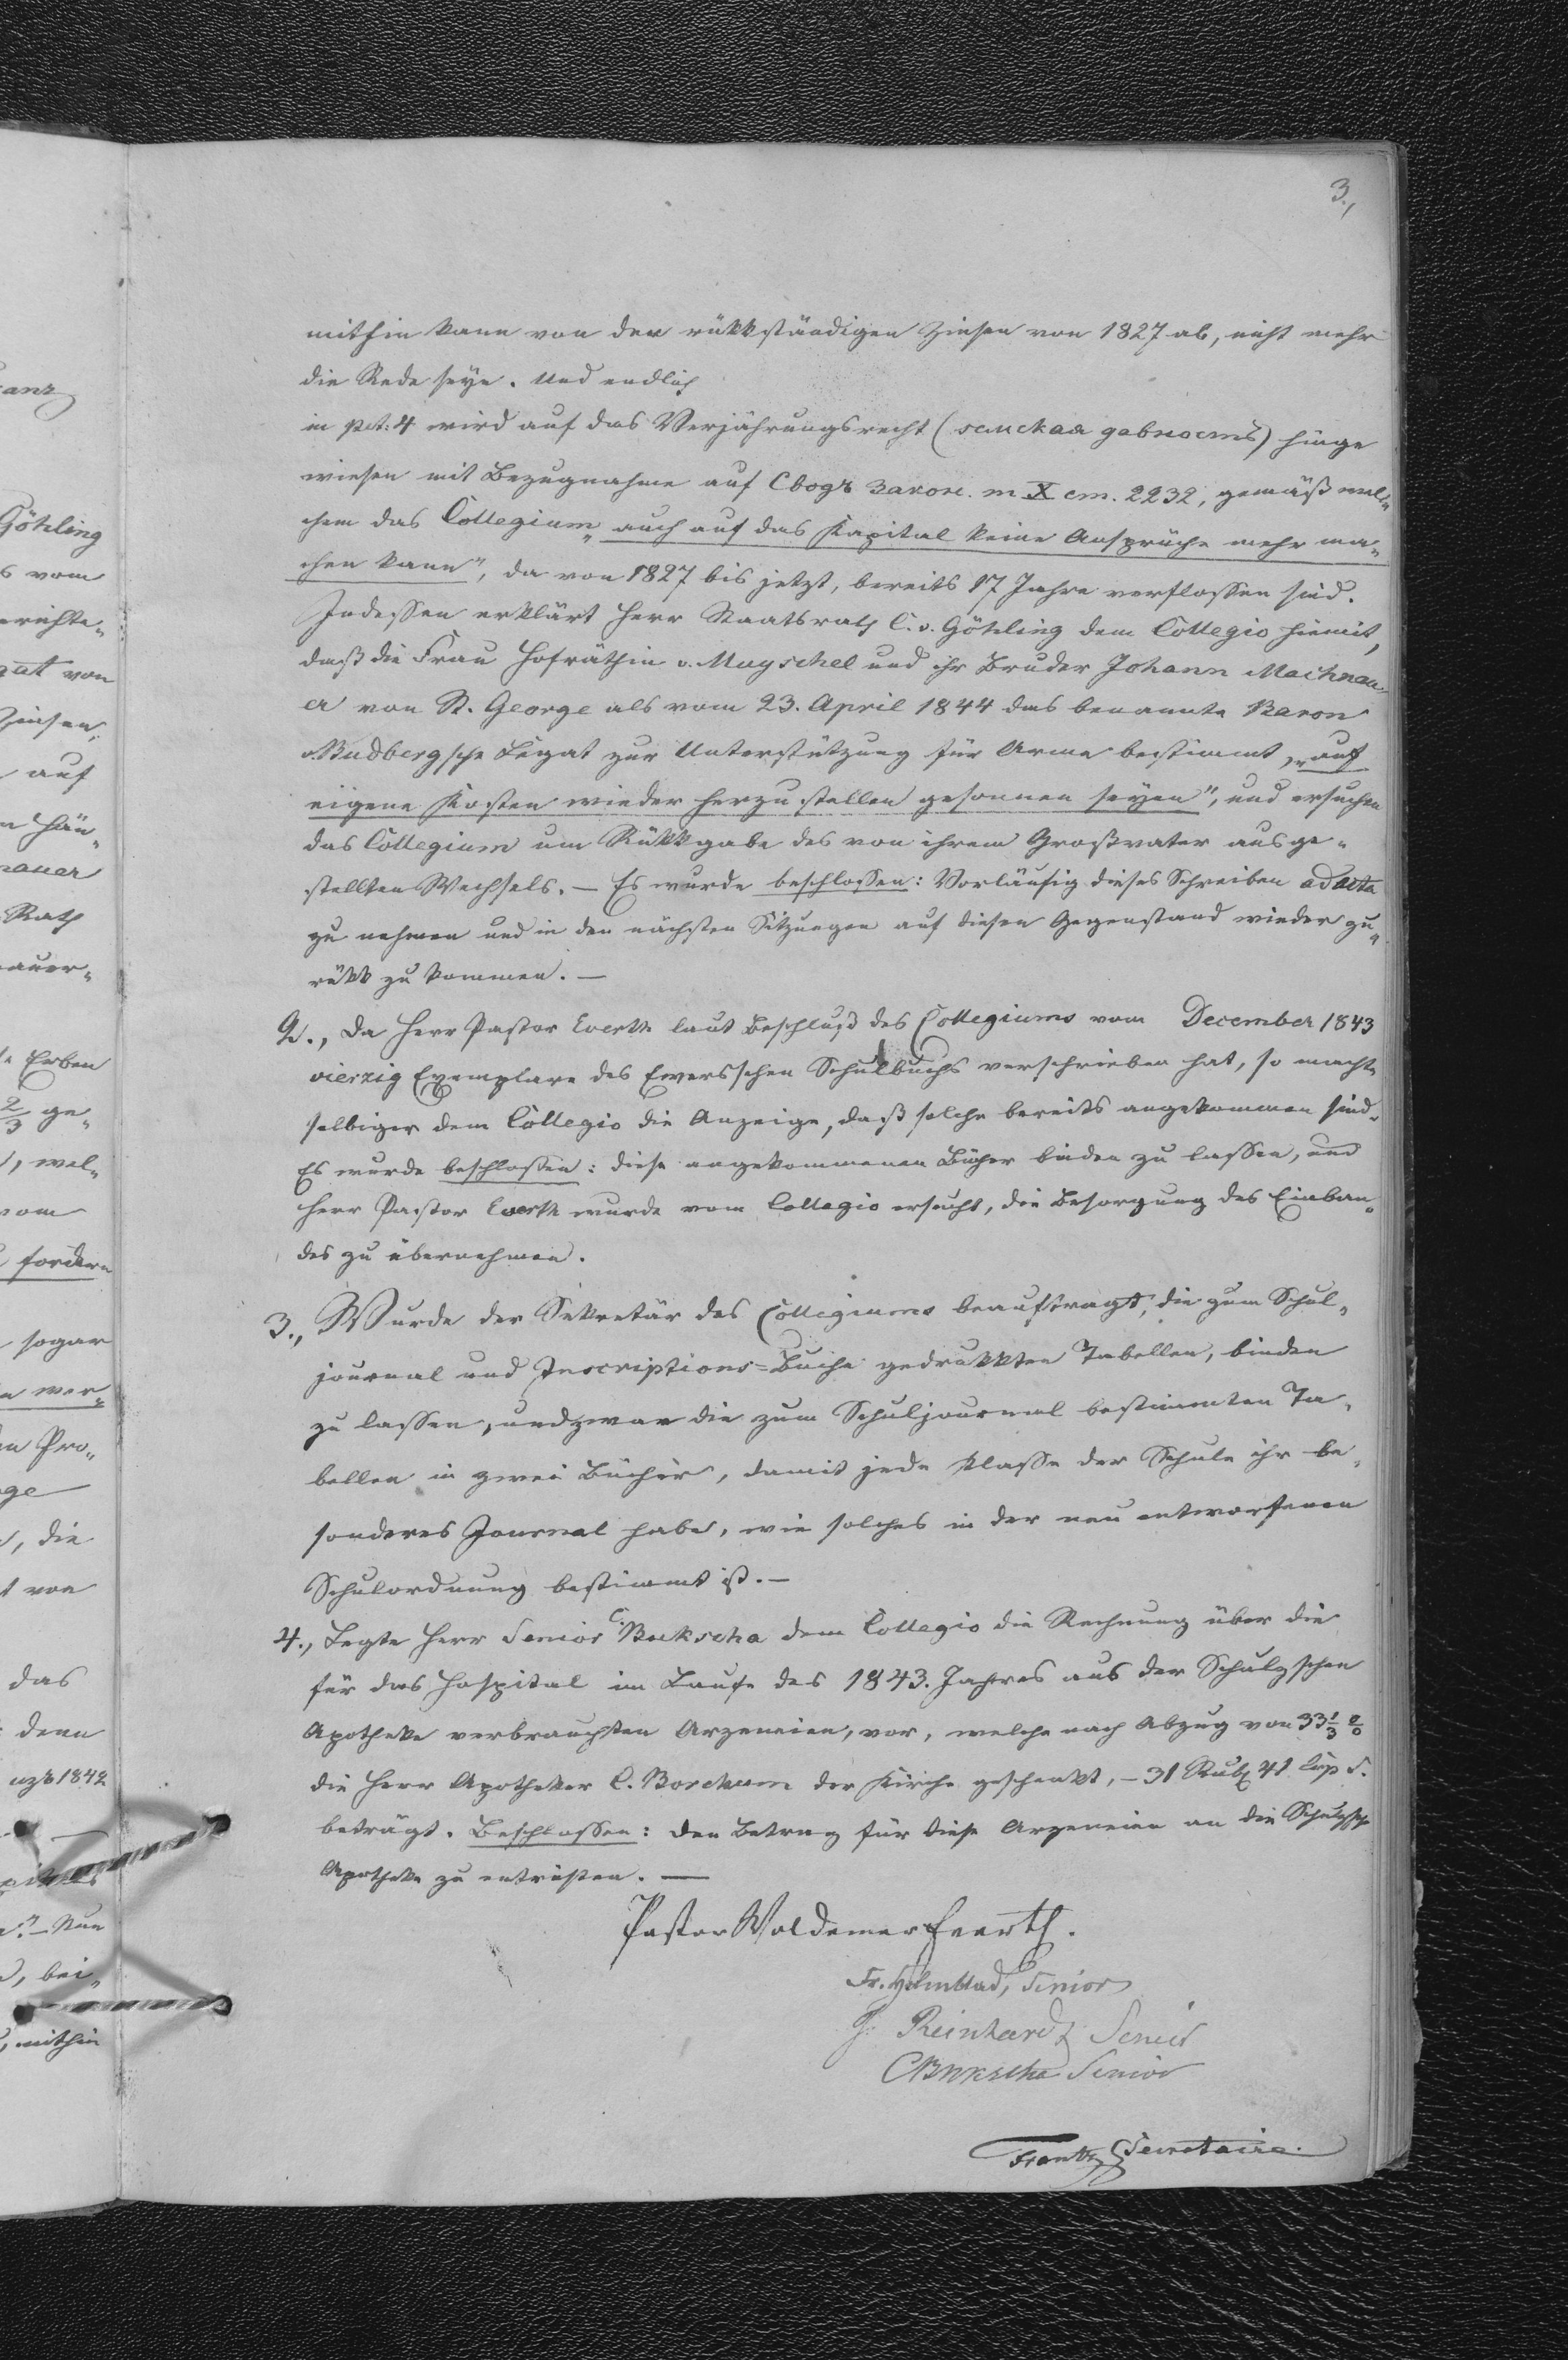 3.,
mithin kann von den rükkständigen Zinsen von 1827 ab, nicht mehr
die Rede seyn. Und endlich
in pct: 4 wird auf das Verjährungsrecht (земская давность) hinge
wiesen mit Bezugnahme auf Сводъ Закон. т X ст. 2232, gemäß wel„
chem das Collegium „auch auf das Kapital keine Ansprüche mehr ma„
chen kann", da von 1827 bis jetzt, bereits 17 Jahre verflossen sind.
Indessen erklärt Herr Staatsrath C. v. Götzling dem Collegio hiemit,
daß die Frau Hofräthin v. Muyschel und ihr Bruder Johann Machnau„
er von St. George als vom 23. April 1844 das benannte Baron
v. Budbergsche Legat zur Unterstützung für Arme bestimmt, „auf
eigene Kosten wieder herzustellen gesonnen seyen", und ersuchen
das Collegium um Rükkgabe des von ihrem Großvater ausge„
stellten Wechsels. — Es wurde beschlossen: Vorläufig dieses Schreiben ad acta
zu nehmen und in den nächsten Sitzungen auf diesen Gegenstand wieder zu„
rükk zu kommen. —
2., Da Herr Pastor Everth laut Beschluß des Collegiums vom December 1843
vierzig Exemplare des Ewersschen Schulbuchs verschrieben hat, so machte
selbiger dem Collegio die Anzeige, daß solche bereits angekommen sind.
Es wurde beschlossen: diese angekommenen Bücher binden zu lassen, und
Herr Pastor Everth wurde vom Collegio ersucht, die Besorgung des Einban„
des zu übernehmen.
3., Wurde der Sekretär des Collegiums beauftragt, die zum Schul„
journal und Inscriptions=Buche gedrukkten Tabellen, binden
zu lassen, und zwar die zum Schuljournal bestimmten Ta„
bellen in zwei Bücher, damit jede Klasse der Schule ihr be„
sonderes Journal habe, wie solches in der neu entworfenen
Schulordnung bestimmt ist. —
4., Legte Herr Senior C. Bukscha dem Collegio die Rechnung über die
für das Hospital im Laufe des 1843. Jahres aus der Schulzschen
Apotheke verbrauchten Arzeneien, vor, welche nach Abzug von 33 1/3 %
die Herr Apotheker C. Borchum der Kirche geschenkt, — 31 Rub. 41 Cop S.
beträgt. Beschlossen: den Betrag für diese Arzeneien an die Schulzsche
Apotheke zu entrichten. —
Pastor Woldemar Everth.
Fr. Helmblad, Senior
J. Reinhardt Senior
C Bukscha Senior
Frantz Secretaire.
Götzling
vom
auf
Rath
Erben
2/3 ge„
fordern
sogar
die
von
das
denn
1842
bei„
mithin